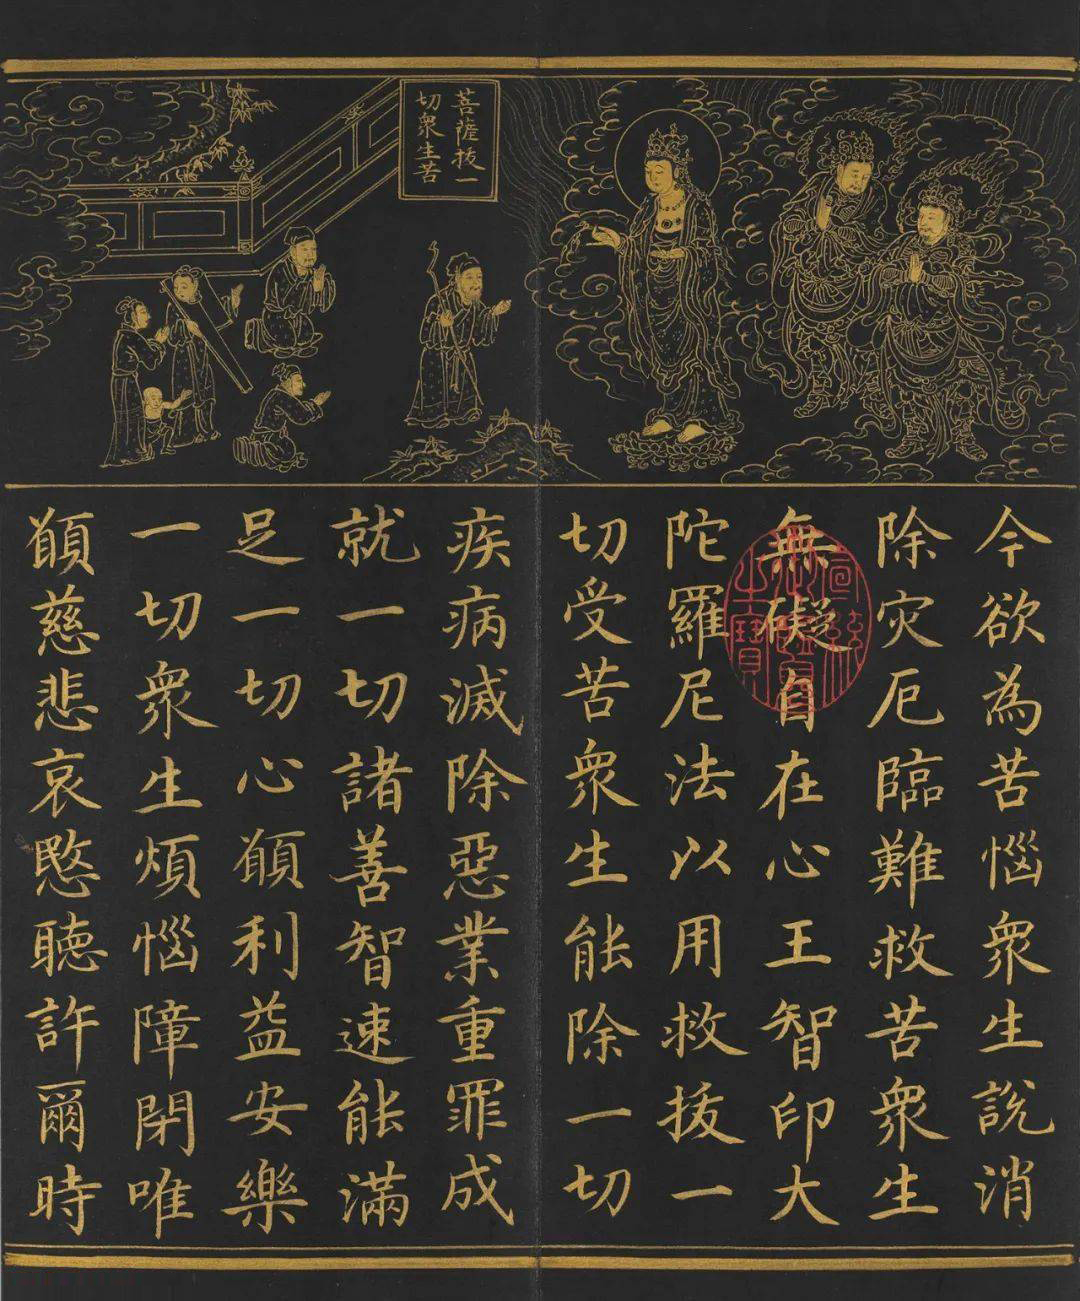 菩薩拔一
切衆生苦
今欲為苦惱衆生說消
除灾厄臨難救苦衆生
無礙自在心王智印大
陀羅尼法以用救拔一
切受苦衆生能除一切
疾病滅除惡業重罪成
就一切諸善智速能滿
足一切心願利益安樂
一切衆生煩惱障閉唯
願慈悲哀愍聽許爾時
宣統
御覽
之寶